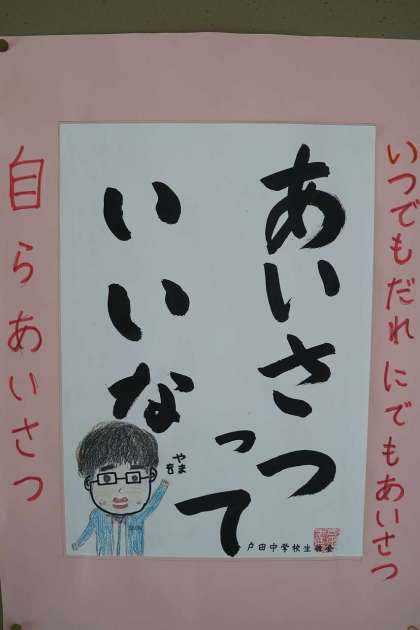 いつでもだれにでもあいさつ
あいさつ
って
いいな
やま
戸田中学校生徒会
自らあいさつ